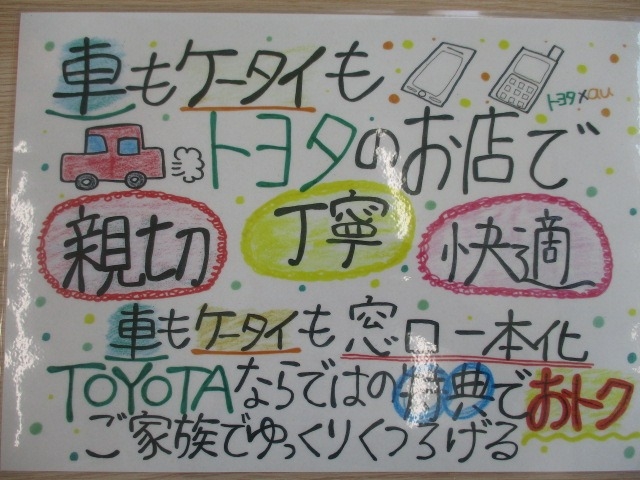 車もケータイも
トヨタ×au
トヨタのお店で
親切 丁寧 快適
車もケータイも窓口一本化
TOYOTAならではの特典でおトク
ご家族でゆっくりくつろげる